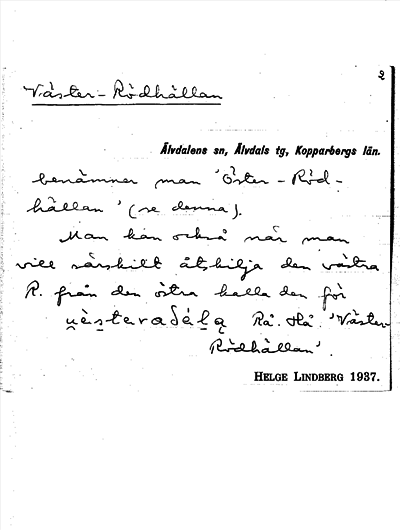 2
Väster-Rödhällan
Älvdalens sn, Älvdals tg, Kopparbergs län.
benämner man 'Öster-Röd-
hällan' (se denna).
Man kan också när man
vill särskilt åtskilja den västra
R. från den östra kalla den för
Rå. Hå. 'Väster
Rödhällan'.
HELGE LINDBERG 1937.